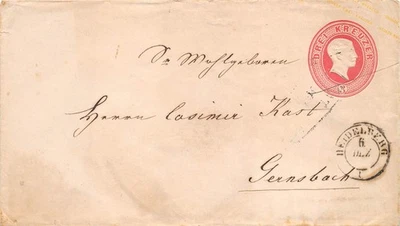 DREI KREUZER
Sr Wohlgeboren
Herrn Casimir Kast
HEIDELBERG
6
Gernsbach